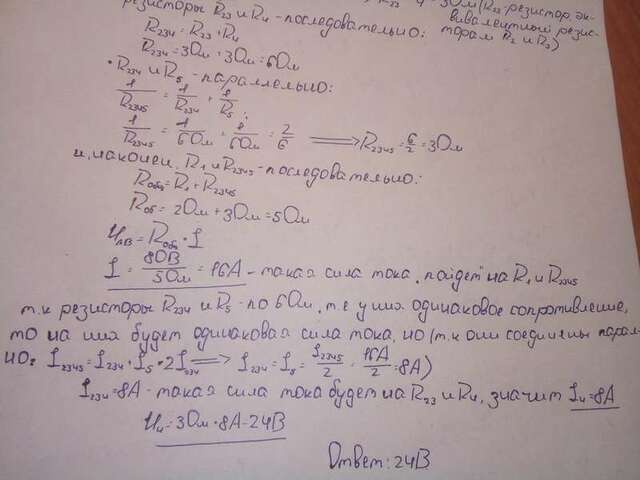 R₂₃ - 4 = 3Ом (R₂₃ - резистор, эк-
резисторы R₂₃ и R₄ - последовательно: вивалентный резис-
R₂₃₄ = R₂₃ + R₄ торам R₂ и R₃)
R₂₃₄ = 3Ом + 3Ом = 6Ом
• R₂₃₄ и R₅ - параллельно:
1/R₂₃₄₅ = 1/R₂₃₄ + 1/R₅
1/R₂₃₄₅ = 1/6Ом + 1/6Ом = 2/6 ⟹ R₂₃₄₅ = 6/2 = 3Ом
и, наконец, R₁ и R₂₃₄₅ - последовательно:
Rобщ = R₁ + R₂₃₄₅
Rоб = 2Ом + 3Ом = 5Ом
UАВ = Rобщ · I
I = 80В/5Ом = 16А - такая сила тока пойдёт на R₁ и R₂₃₄₅
т.к резисторы R₂₃₄ и R₅ - по 6Ом, т.е у них одинаковое сопротивление,
то на них будет одинаковая сила тока, но (т.к они соединены парал-
но: I₂₃₄₅ = I₂₃₄ + I₅ = 2I₂₃₄ ⟹ I₂₃₄ = I₅ = I₂₃₄₅/2 = 16А/2 = 8А)
I₂₃₄ = 8А - такая сила тока будет на R₂₃ и R₄, значит I₄ = 8А
U₄ = 3Ом · 8А = 24В
Ответ: 24В